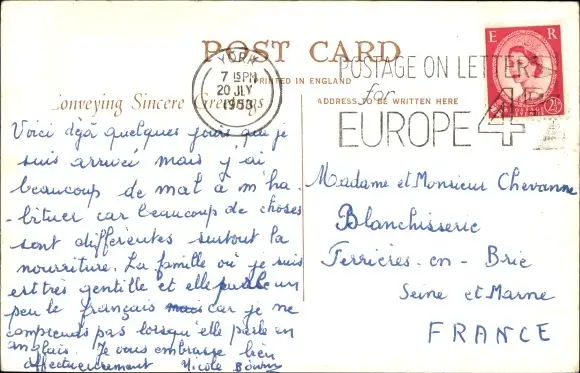 POST CARD
PRINTED IN ENGLAND
Conveying Sincere Greetings
ADDRESS TO BE WRITTEN HERE
YORK
7 15 PM
20 JLY
1953
POSTAGE ON LETTERS
for
EUROPE 4D
E R
2½
Voici déjà quelques jours que je
suis arrivée mais j'ai
beaucoup de mal à m'ha
-bituer car beaucoup de choses
sont différentes surtout la
nourriture. La famille où je suis
est très gentille et elle parle un
peu le français mais car je ne
comprends pas lorsqu'elle parle en
anglais. Je vous embrasse bien
affectueusement Nicole
Madame et Monsieur Chevanne
Blanchisserie
Ferrières-en-Brie
Seine et Marne
FRANCE